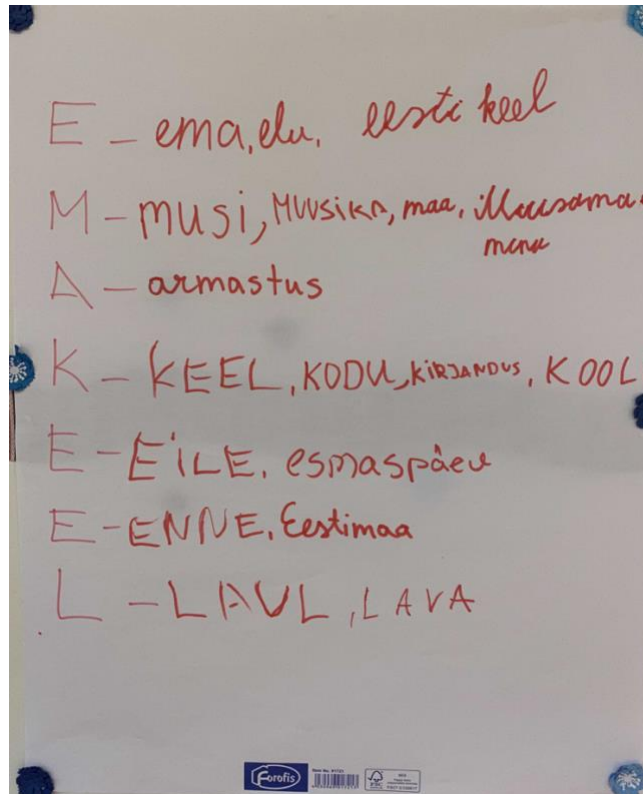 E – ema, elu, eesti keel
M – musi, MUUSIKA, maa, Muusama
mina
A – armastus
K – KEEL, KODU, KIRJANDUS, KOOL
E – EILE, esmaspäev
E – ENNE, Eestimaa
L – LAUL, LAVA
Forofis
FSC